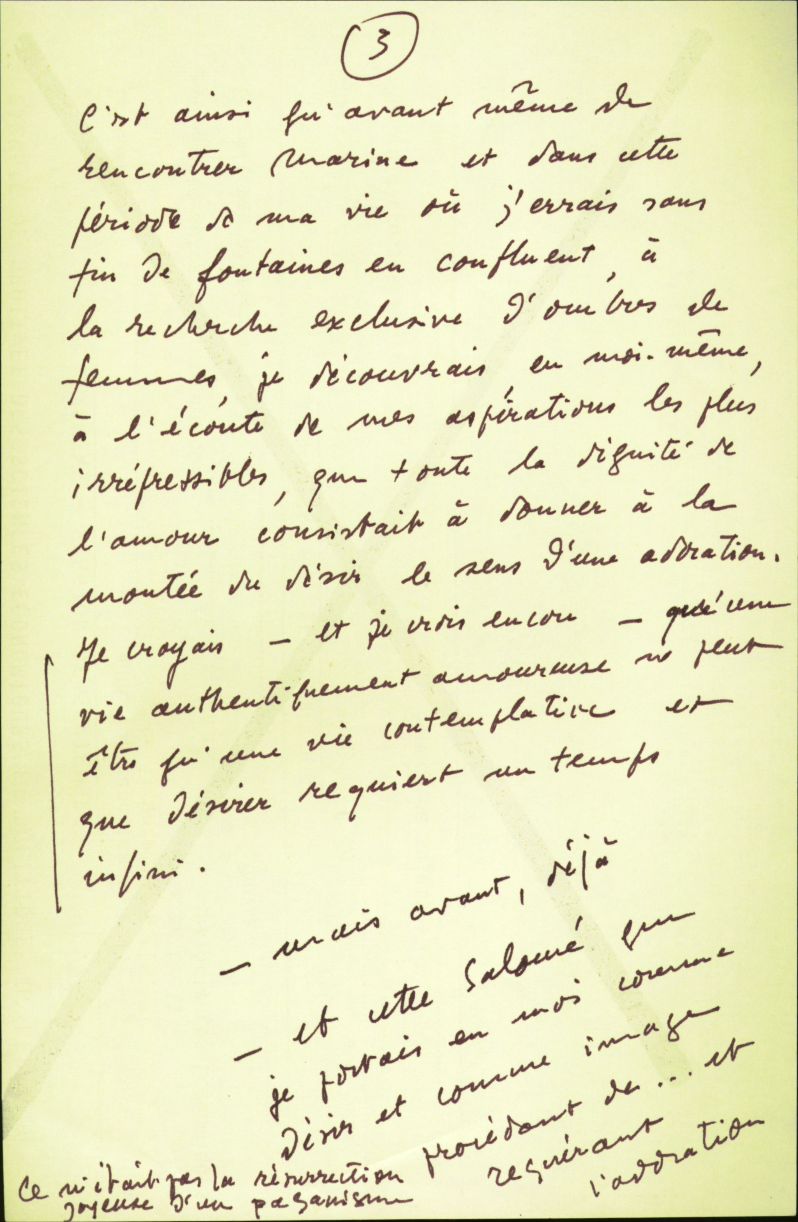 3
C'est ainsi qu'avant même de
rencontrer Marine et dans cette
période de ma vie où j'errais sans
fin de fontaines en confluent, à
la recherche exclusive d'ombres de
femmes, je découvrais, en moi-même,
à l'écoute de mes aspirations les plus
irrépressibles, que toute la dignité de
l'amour consistait à donner à la
montée du désir le sens d'une adoration.
Je croyais – et je crois encore – qu'une
vie authentiquement amoureuse ne peut
être qu'une vie contemplative et
que désirer requiert un temps
infini.
– mais avant, déjà
– et cette Salomé que
je portais en moi comme
désir et comme image
procédant de... et
requérant
l'adoration
Ce n'était pas la résurrection
joyeuse d'un paganisme